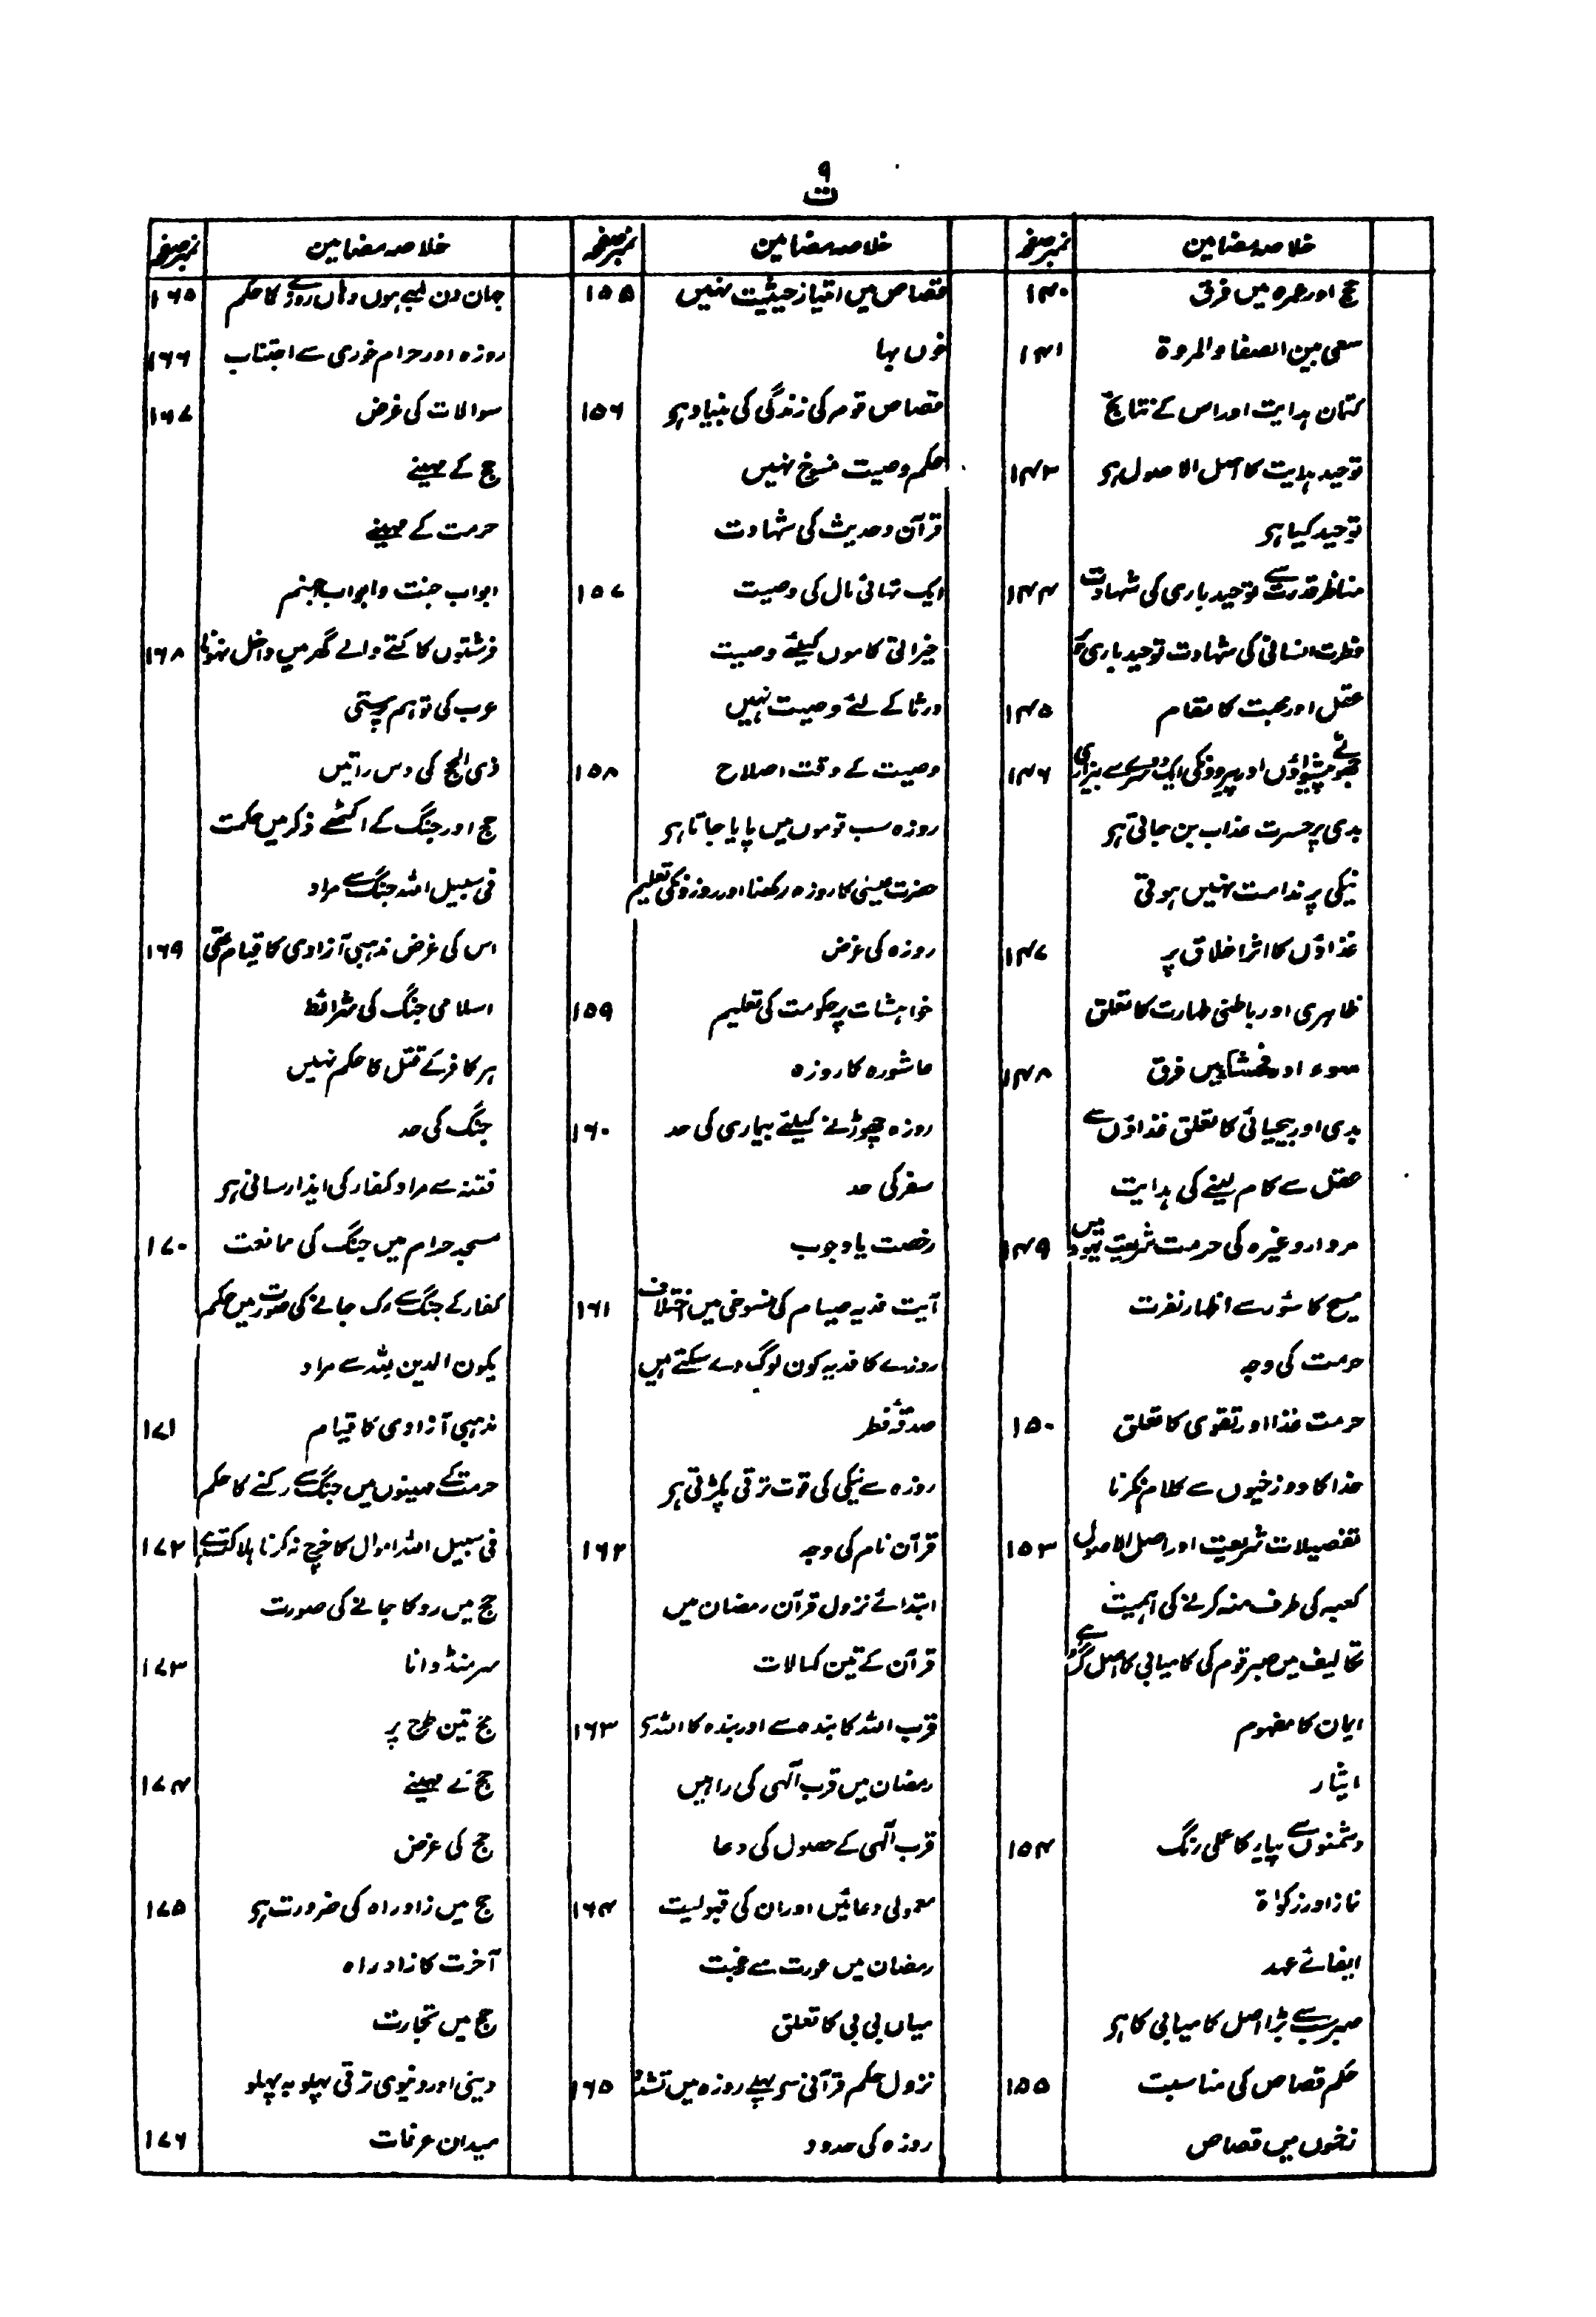 ۹
ت
خلاصہ مضامین نمبر صفحہ
حج اور عمرہ میں فرق ۱۴۰
سعی بین الصفا والمروۃ ۱۴۱
کتمان ہدایت اور اس کے نتائج
توحید ہدایت کا اصل الاصول ہو ۱۴۳
توحید کیا ہو
مناظر قدرت سے توحید باری کی شہادت ۱۴۴
فطرت انسانی کی شہادت توحید باری پر
عقل اور محبت کا مقام ۱۴۵
جھوٹے پیشواؤں اور پیرووں کی ایک دوسرے سے بیزاری ۱۴۶
بدی پر حسرت عذاب بن جاتی ہو
نیکی پر ندامت نہیں ہوتی
غذاؤں کا اثر اخلاق پر ۱۴۷
ظاہری اور باطنی طہارت کا تعلق
سوء اور فحشا میں فرق ۱۴۸
بدی اور بیحیائی کا تعلق غذاؤں سے
عقل سے کام لینے کی ہدایت
مردار وغیرہ کی حرمت شریعت یہود میں ۱۴۹
مسیح کا سؤر سے اظہار نفرت
حرمت کی وجہ
حرمت غذا اور تقوی کا تعلق ۱۵۰
خدا کا دوزخیوں سے کلام نکرنا
تفصیلات شریعت اور اصل الاصول ۱۵۳
کعبہ کی طرف منہ کرنے کی اہمیت
تکالیف میں صبر قوم کی کامیابی کا اصل گر ہے
ایمان کا مفہوم
ایثار
دشمنوں سے پیار کا عملی رنگ ۱۵۴
نماز اور زکوٰۃ
ایفائے عہد
صبر سب سے بڑا اصل کامیابی کا ہو
حکم قصاص کی مناسبت ۱۵۵
زخموں میں قصاص
خلاصہ مضامین نمبر صفحہ
قصاص میں امتیاز حیثیت نہیں ۱۵۵
خوں بہا
قصاص قوم کی زندگی کی بنیاد ہو ۱۵۶
حکم وصیت منسوخ نہیں
قرآن و حدیث کی شہادت
ایک تہائی مال کی وصیت ۱۵۷
خیراتی کاموں کیلئے وصیت
ورثا کے لئے وصیت نہیں
وصیت کے وقت اصلاح ۱۵۸
روزہ سب قوموں میں پایا جاتا ہو
حضرت عیسٰی کا روزہ رکھنا اور روزونکی تعلیم
روزہ کی غرض
خواہشات پر حکومت کی تعلیم ۱۵۹
عاشورہ کا روزہ
روزہ چھوڑنے کیلئے بیماری کی حد ۱۶۰
سفر کی حد
رخصت یا وجوب
آیت فدیہ صیام کی منسوخی میں اختلاف ۱۶۱
روزے کا فدیہ کون لوگ دے سکتے ہیں
صدقۂ فطر
روزہ سے نیکی کی قوت ترقی پکڑتی ہو
قرآن نام کی وجہ ۱۶۲
ابتدائے نزول قرآن رمضان میں
قرآن کے تین کمالات
قرب اللہ کا بندہ سے اور بندہ کا اللہ سے ۱۶۳
رمضان میں قرب الٰہی کی راہیں
قرب الٰہی کے حصول کی دعا
معمولی دعائیں اور ان کی قبولیت ۱۶۴
رمضان میں عورت سے رغبت
میاں بی بی کا تعلق
نزول حکم قرآنی سے پہلے روزہ میں تشدد ۱۶۵
روزہ کی حدود
خلاصہ مضامین نمبر صفحہ
جہان دن لمبے ہوں وہاں روزے کا حکم ۱۶۵
روزہ اور حرام خوری سے اجتناب ۱۶۶
سوالات کی غرض ۱۶۷
حج کے مہینے
حرمت کے مہینے
ابواب جنت و ابواب جہنم
فرشتوں کا کتے والے گھر میں داخل نہونا ۱۶۸
عرب کی توہم پرستی
ذی الحج کی دس راتیں
حج اور جنگ کے اکٹھے ذکر میں حکمت
فی سبیل اللہ جنگ سے مراد
اس کی غرض مذہبی آزادی کا قیام تھی ۱۶۹
اسلامی جنگ کی شرائط
ہر کافر کے قتل کا حکم نہیں
جنگ کی حد
فتنہ سے مراد کفار کی ایذا رسانی ہو
مسجد حرام میں جنگ کی ممانعت ۱۷۰
کفار کے جنگ سے رک جانے کی صورت میں حکم
یکون الدین للہ سے مراد
مذہبی آزادی کا قیام ۱۷۱
حرمت کے مہینوں میں جنگ سے رکنے کا حکم
فی سبیل اللہ اموال کا خرچ نہ کرنا ہلاکت ہے ۱۷۲
حج میں روکا جانے کی صورت
سر منڈوانا ۱۷۳
حج تین طرح پر
حج کے مہینے ۱۷۴
حج کی غرض
حج میں زاد راہ کی ضرورت ہو ۱۷۵
آخرت کا زاد راہ
حج میں تجارت
دینی اور دنیوی ترقی پہلو بہ پہلو
میدان عرفات ۱۷۶